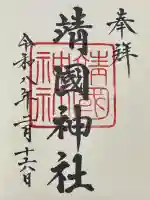 奉拜
靖國神社
令和八年二月十六日
靖國神社